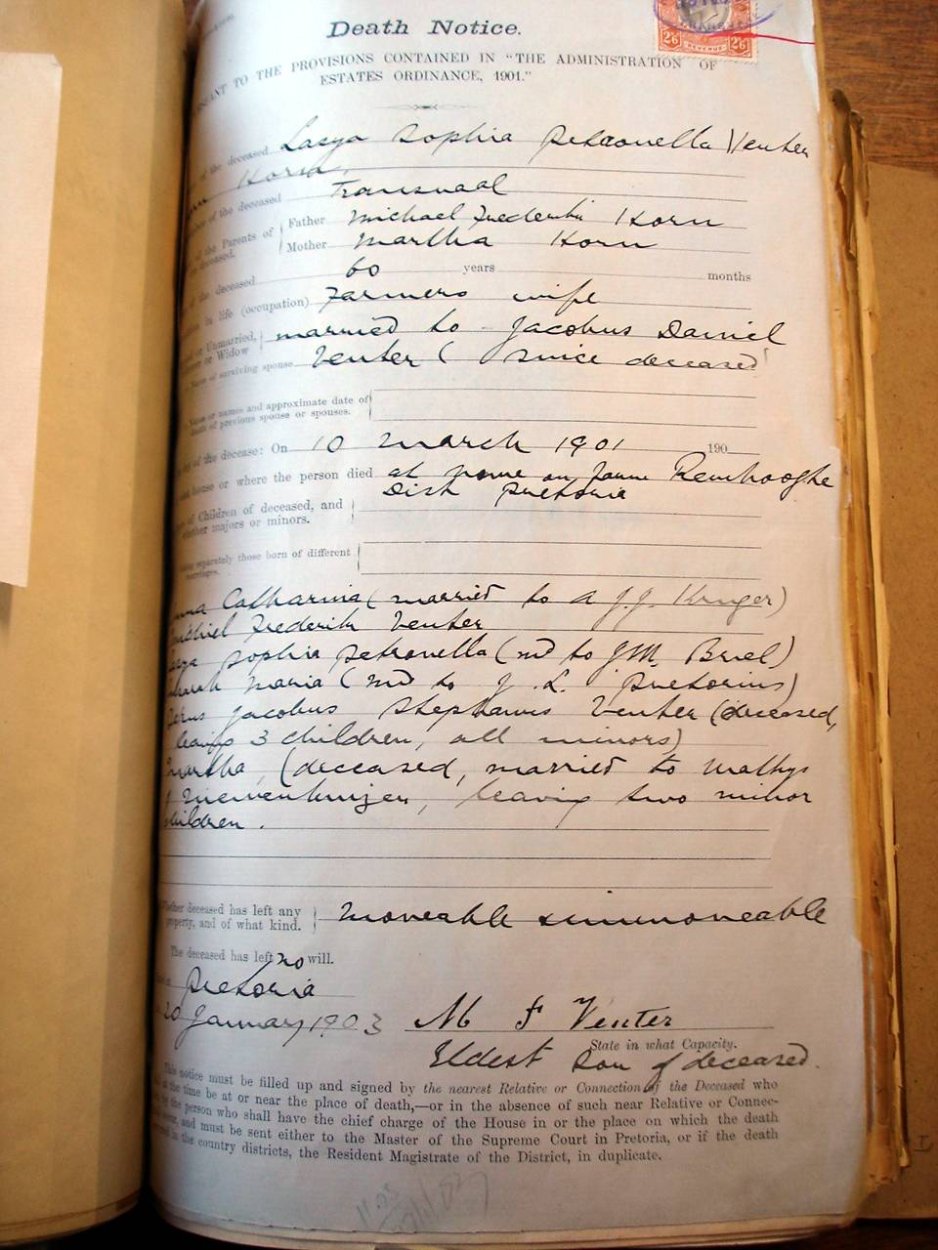 Death Notice.
TO THE PROVISIONS CONTAINED IN "THE ADMINISTRATION OF
ESTATES ORDINANCE, 1901."
2/6 REVENUE 2/6
of the deceased Lasya Sophia Petronella Venter
Horn,
of the deceased Transvaal
the Parents of Father Michael Frederik Horn
deceased. Mother Martha Horn
of the deceased 60 years months
in life (occupation) Farmers wife
or Unmarried, married to Jacobus Daniel
or Widow
Name of surviving spouse Venter (since deceased)
Name or names and approximate date of
death of previous spouse or spouses.
of the decease: On 10 March 1901 190
house or where the person died at home on farm
Dist Pretoria
of Children of deceased, and
whether majors or minors.
separately those born of different
marriages.
Catharina (married to A J.J. Kruger)
Frederik Venter
Sophia Petronella (md to J M. Briel)
Maria (md to J. L. Pretorius)
Jacobus Stephanus Venter (deceased,
leaving 3 children, all minors)
Martha, (deceased, married to Mathys
Niewenhuizen, leaving two minor
children.
Whether deceased has left any
property, and of what kind. Moveable & immoveable
The deceased has left no will.
Pretoria
20 January 1903 M F Venter
State in what Capacity.
Eldest Son of deceased.
This notice must be filled up and signed by the nearest Relative or Connection of the Deceased who
at the time be at or near the place of death,—or in the absence of such near Relative or Connec-
by the person who shall have the chief charge of the House in or the place on which the death
and must be sent either to the Master of the Supreme Court in Pretoria, or if the death
in the country districts, the Resident Magistrate of the District, in duplicate.